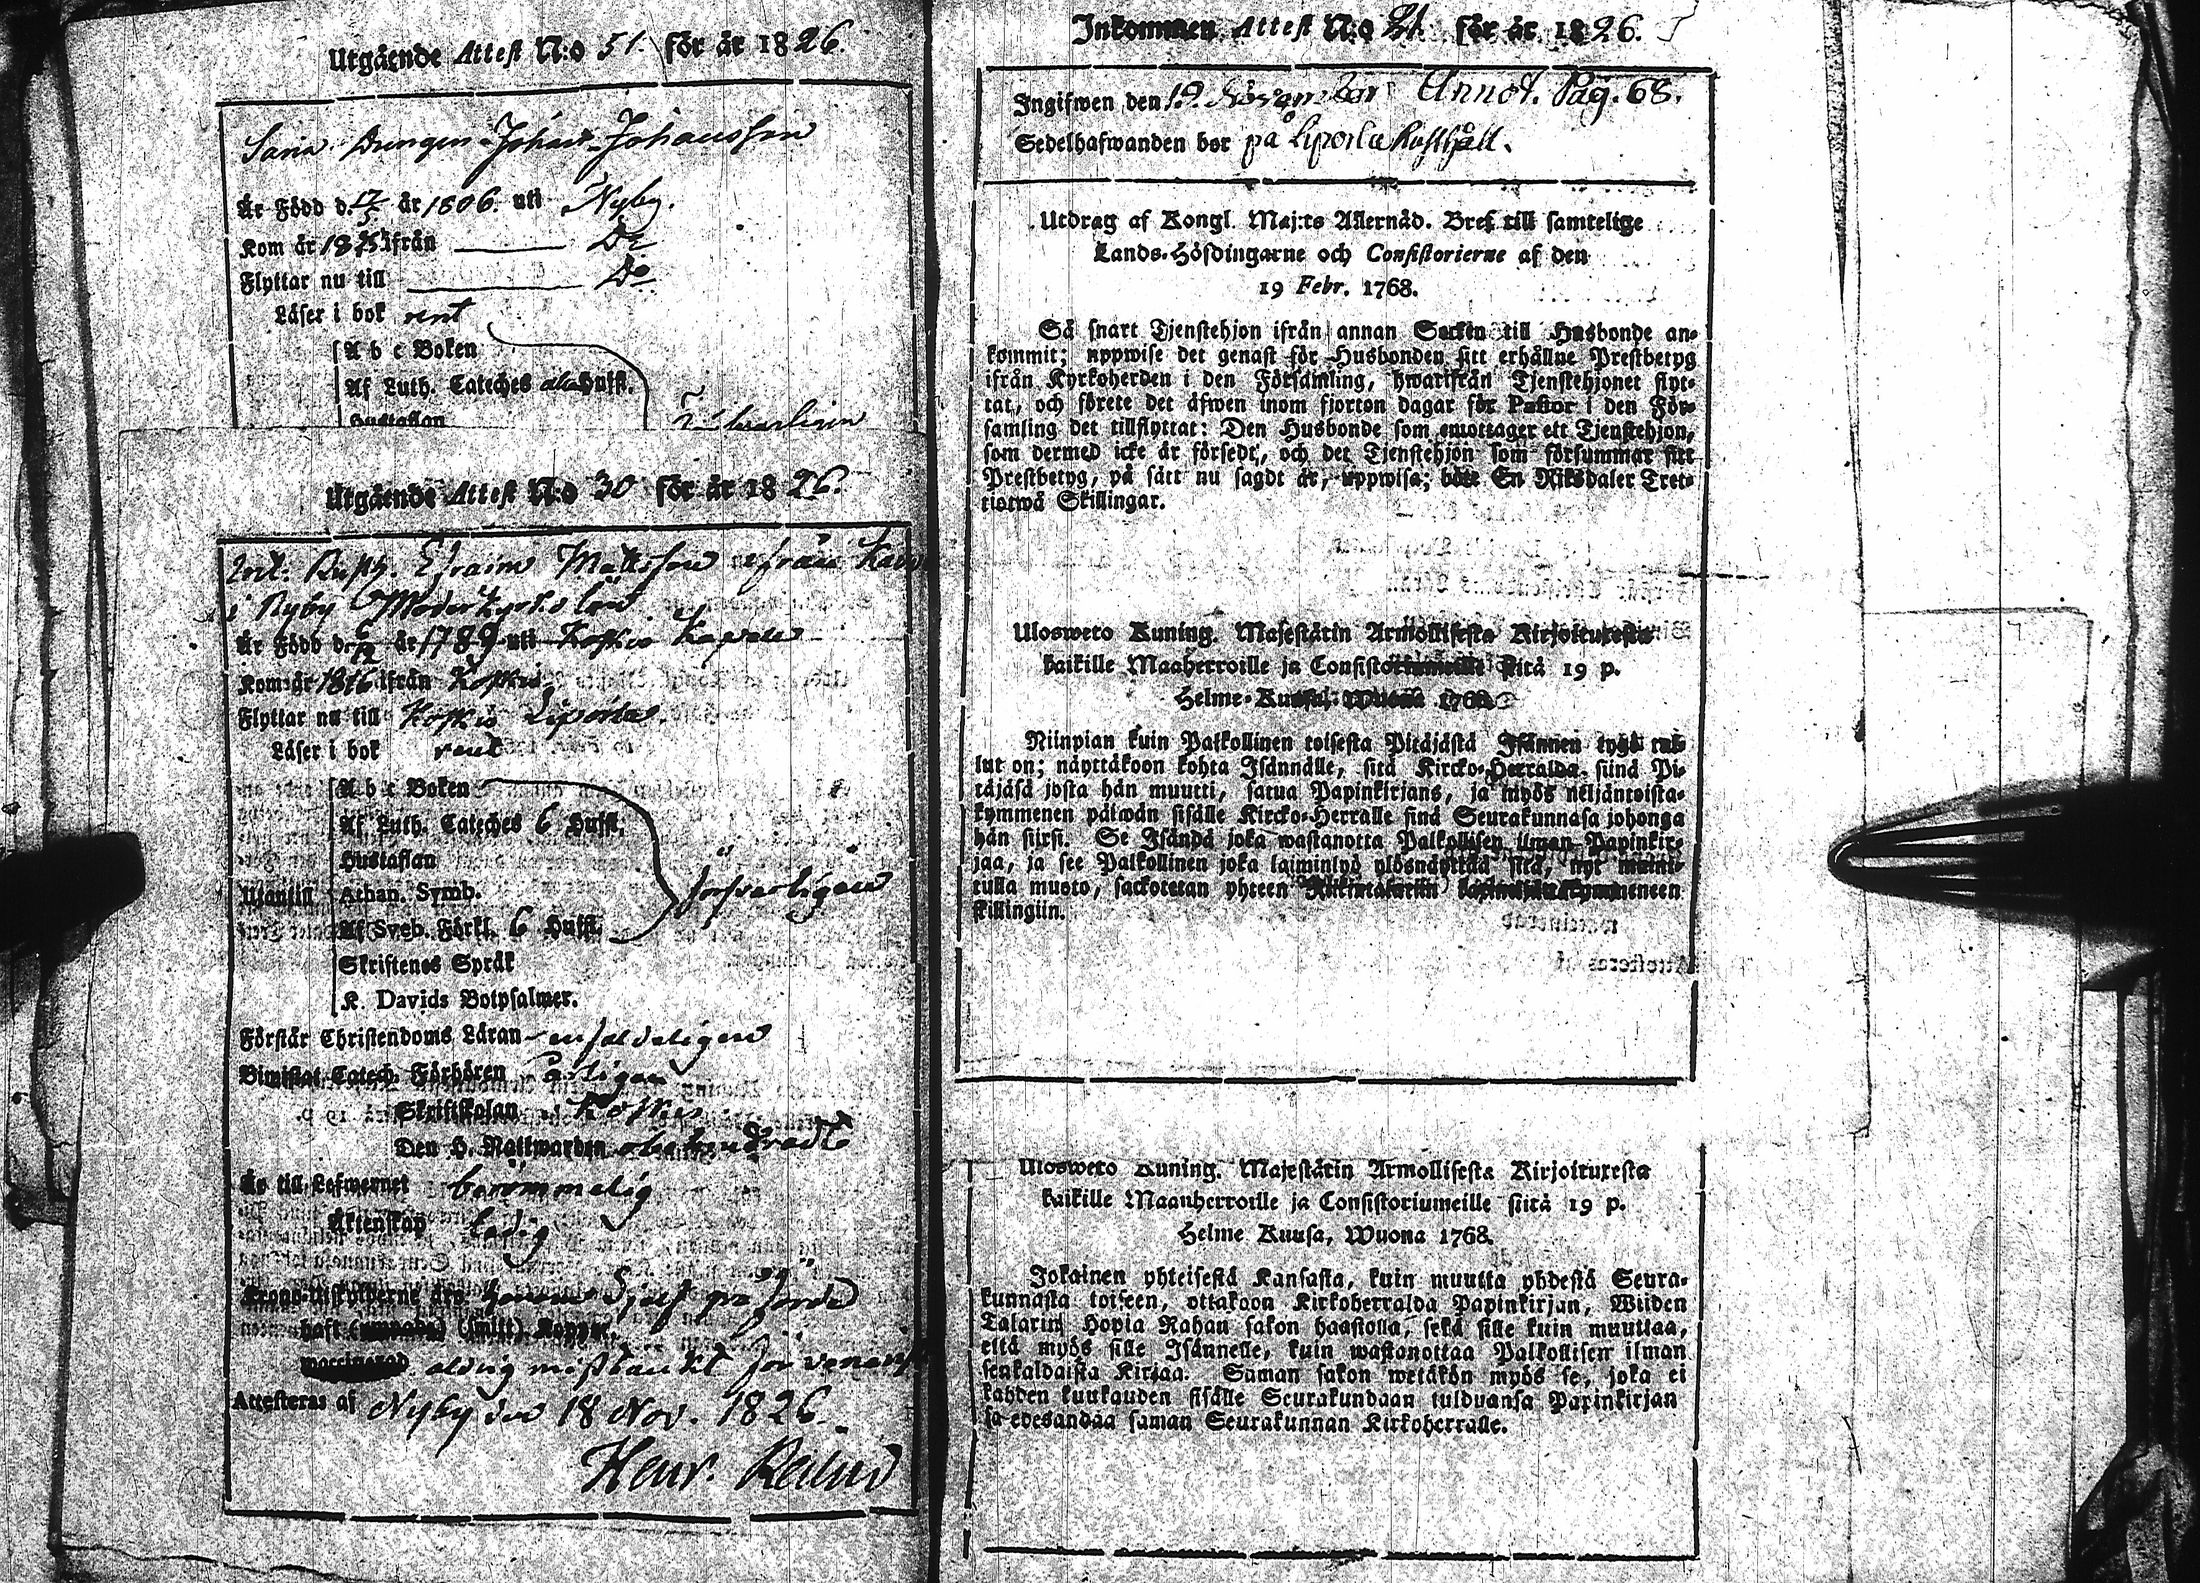 Utgående Attest N:o 51. för år 1826.
Drengen Johan Johansson
Är Född d. 17/5 år 1806. uti Nyby.
Kom år ifrån Do
Flyttar nu till Do
Läser i bok rent
A b c Boken
Af Luth. Cateches Hufst.
Hustaflan
Utgående Attest N:o 30 för år 1826.
Rusth. Efraim Mattsson ifrån
i Nyby Moderkyrko
Är Född d. år 1789 uti Koskis Kapell
Kom år 1816 ifrån Koskis
Flyttar nu till Koskis Liporla.
Läser i bok rent
A b c Boken
Af Luth. Cateches 6 Hufst.
Hustaflan
Utantill Athan. Symb.
Af Sveb. Förkl. 6 Hufst.
försvarligen
Skriftenes Språk
K. Davids Botpsalmer.
Förstår Christendoms Läran enfaldeligen
Biwistat Catech. Förhören årligen
Skriftskolan Koskis
Den H. Nattwarden obehindradt
Är till Lefwernet berömmelig
Äktenskap ledig
Krono-Utskylderne
haft (smitt) Koppor,
waccinerad aldrig misstänkt för
Attesteras af Nyby den 18 Nov. 1826.
Henr.
Inkommen Attest N:o 21. för år 1826.
Ingifwen den 19 November Annot. Pag. 68.
Sedelhafwanden bor på Liporla Rusthåll.
Utdrag af Kongl. Maj:ts Allernåd. Bref till samtelige
Lands-Höfdingarne och Consistorierne af den
19 Febr. 1768.
Så snart Tjenstehjon ifrån annan Socken till Husbonde an-
kommit; uppwise det genast för Husbonden sitt erhållne Prestbetyg
ifrån Kyrkoherden i den Församling, hwarifrån Tjenstehjonet flyt-
tat, och förete det äfwen inom fjorton dagar för Pastor i den För-
samling det tillflyttat: Den Husbonde som emottager ett Tjenstehjon,
som dermed icke är försedt, och det Tjenstehjon som försummar sitt
Prestbetyg, på sätt nu sagdt är, uppwisa; böte En Riksdaler Tret-
tiotwå Skillingar.
Ulosweto Kuning. Majestätin Armollisesta Kirjoituxesta
kaikille Maaherroille ja Consistoriumeille siitä 19 p.
Helme-Kuusa, Wuona 1768.
Niinpian kuin Palkollinen toisesta Pitäjästä Isännen tygö tul-
lut on; näyttäkoon kohta Isännälle, sitä Kircko-Herralda siinä Pi-
täjäsä josta hän muutti, saatua Papinkirjans, ja myös neljäntoista-
kymmenen päiwän sisälle Kircko-Herralle siinä Seurakunnasa johonga
hän siirsi. Se Isändä joka wastanotta Palkollisen ilman Papinkir-
jaa, ja see Palkollinen joka laiminlyö ylösnäyttää sitä, nyt maini-
tulla muoto, sackotetan yhteen Riikintalariin kymmeneen
skillingiin.
Ulosweto Kuning. Majestätin Armollisesta Kirjoituxesta
kaikille Maanherroille ja Consistoriumeille siitä 19 p.
Helme Kuusa, Wuona 1768.
Jokainen yhteisestä Kansasta, kuin muutta yhdestä Seura-
kunnasta toiseen, ottakoon Kirkoherralda Papinkirjan, Wiiden
Talarin Hopia Rahan sakon haastolla, sekä sille kuin muuttaa,
että myös sille Isännelle, kuin wastanottaa Palkollisen ilman
senkaldaista Kirjaa. Saman sakon wetäkön myös se, joka ei
kahden kuukauden sisälle Seurakundaan tulduansa Papinkirjan
sa edesandaa saman Seurakunnan Kirkoherralle.